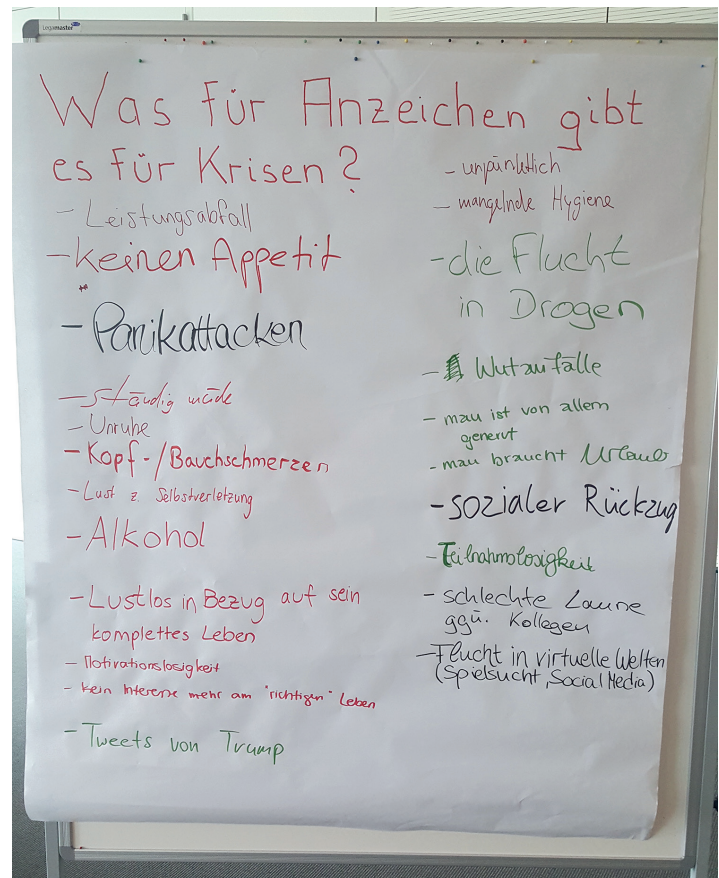 Legamaster
Was für Anzeichen gibt
es für Krisen?
- Leistungsabfall
- keinen Appetit
- Panikattacken
- ständig müde
- Unruhe
- Kopf-/Bauchschmerzen
- Lust z. Selbstverletzung
- Alkohol
- Lustlos in Bezug auf sein
komplettes Leben
- Motivationslosigkeit
- kein Interesse mehr am "richtigen" Leben
- Tweets von Trump
- unpünktlich
- mangelnde Hygiene
- die Flucht
in Drogen
- Wutanfälle
- man ist von allem
genervt
- man braucht Urlaub
- sozialer Rückzug
- Teilnahmslosigkeit
- schlechte Laune
ggü. Kollegen
- Flucht in virtuelle Welten
(Spielsucht, Social Media)